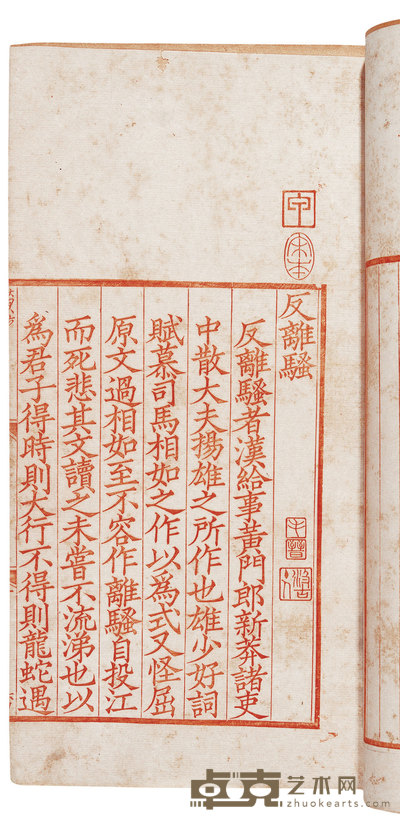 甲
宋本
反離騷
反離騷者漢給事黃門郎新莽諸吏
中散大夫揚雄之所作也雄少好詞
賦慕司馬相如之作以爲式又怪屈
原文過相如至不容作離騷自投江
而死悲其文讀之未嘗不流涕也以
爲君子得時則大行不得則龍蛇遇
毛晉
卓克艺术网
zhuokearts.com